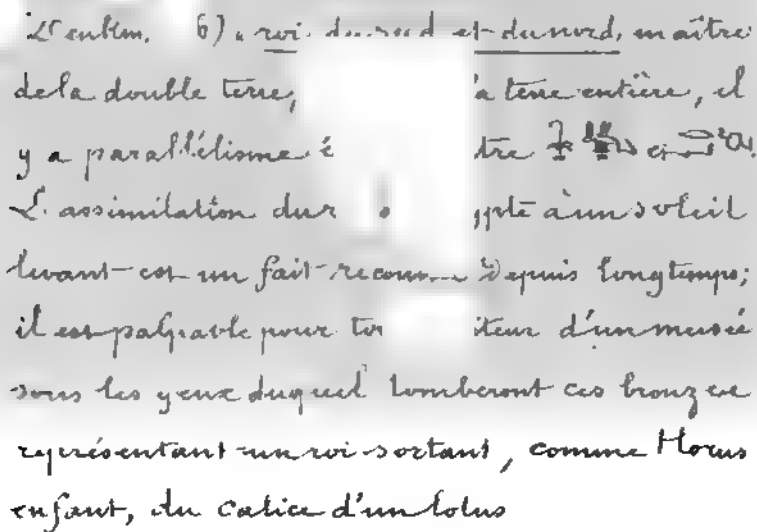 6) « roi du sud et du nord, maître
de la double terre, la terre entière, il
y a parallélisme entre et
L'assimilation du à un soleil
levant est un fait reconnu depuis longtemps;
il est palpable pour d'un musée
sous les yeux duquel tomberont ces bronzes
représentant un roi sortant, comme Horus
enfant, du calice d'un lotus